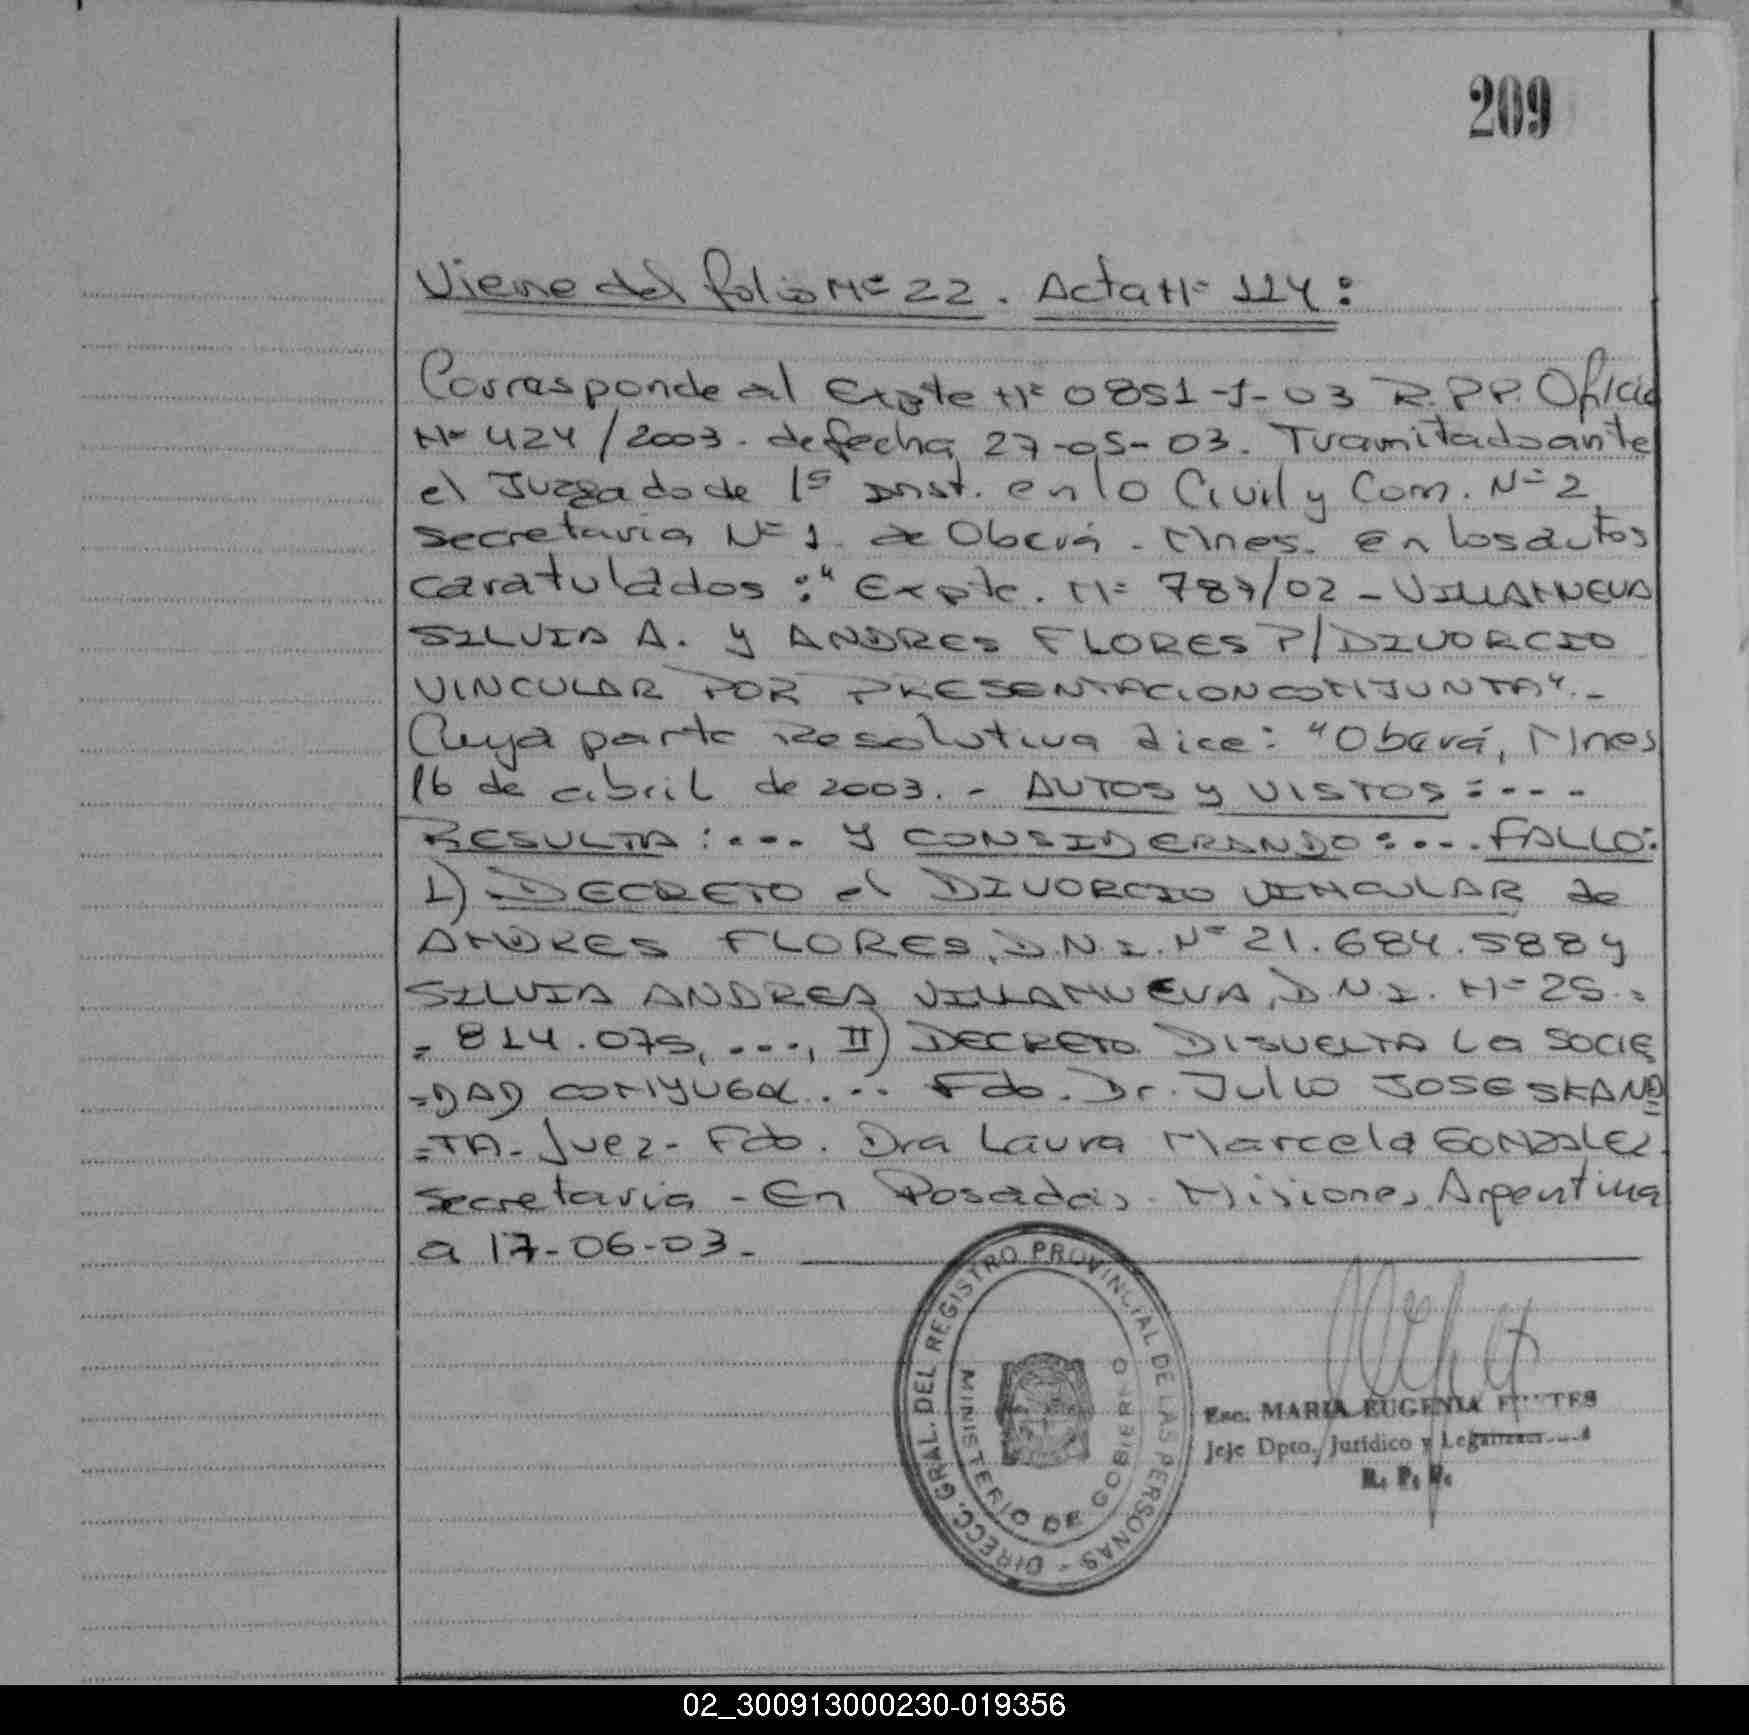 209
Viene del folio Nº 22. Acta Nº 114:
Corresponde al Expte Nº 0851-J-03 R.P.P. Oficio
Nº 424/2003. de fecha 27-05-03. Tramitado ante
el Juzgado de 1º Inst. en lo Civil y Com. Nº 2
Secretaria Nº 1. de Oberá. Mnes. en los autos
caratulados: "Expte. Nº 787/02 - VILLANUEVA
SILVIA A. y ANDRES FLORES P/DIVORCIO
VINCULAR POR PRESENTACION CONJUNTA".-
Cuya parte Resolutiva dice: "Oberá, Mnes
16 de abril de 2003.- AUTOS y VISTOS:...
RESULTA:... y CONSIDERANDO:... FALLO:
1) DECRETO el DIVORCIO VINCULAR de
ANDRES FLORES, D.N.I. Nº 21.684.588 y
SILVIA ANDREA VILLANUEVA, D.N.I. Nº 25.=
=814.075, ..., II) DECRETO DISUELTA La SOCIE
=DAD CONYUGAL... Fdo. Dr. Julio JOSE SKANA
=TA- Juez- Fdo. Dra Laura Marcela GONZALEZ.
Secretaria - En Posadas. Misiones, Argentina
a 17-06-03.-
DIRECC. GRAL. DEL REGISTRO PROVINCIAL DE LAS PERSONAS -
MINISTERIO DE GOBIERNO
Esc. MARIA EUGENIA
Jefe Dpto. Jurídico y
R. P. P.
02_300913000230-019356